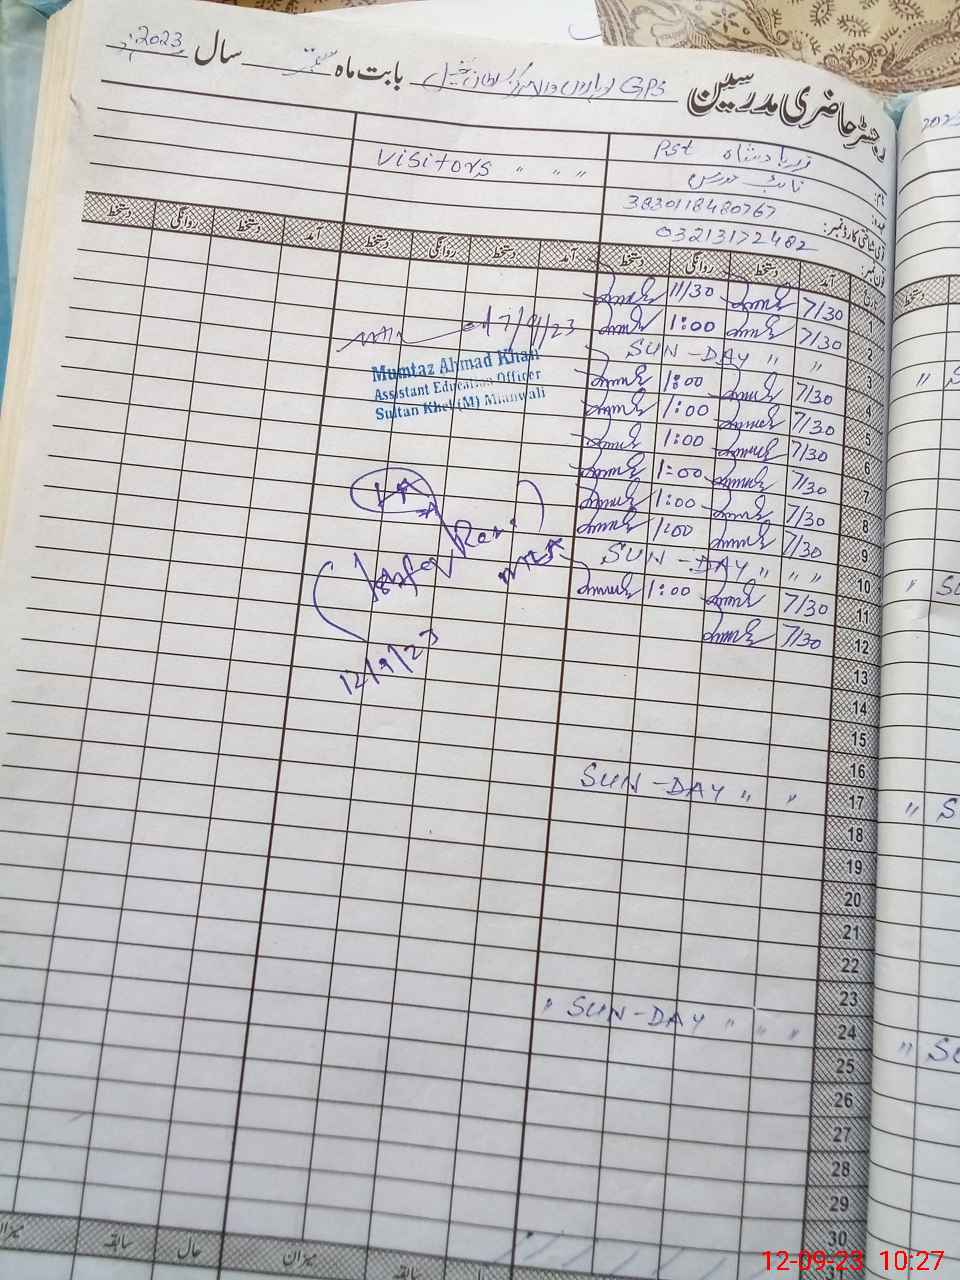 رجسٹر حاضری مدرسین GPS بابت ماہ ستمبر سال 2023ء
نام: نور بادشاہ Pst
عہدہ: نائب مدرس
قومی شناختی کارڈ نمبر: 3830118480767
فون نمبر: 03213172482
Visitors " " "
تاریخ آمد دستخط روانگی دستخط آمد دستخط روانگی دستخط آمد دستخط روانگی دستخط
1 7/30 11/30
2 7/30 1:00
3 SUN-DAY " "
4 7/30 1:00
5 7/30 1:00
6 7/30 1:00
7 7/30 1:00
8 7/30 1:00
9 7/30 1:00
10 SUN-DAY " " "
11 7/30 1:00
12 7/30
13
14
15
16
17 SUN-DAY " "
18
19
20
21
22
23
24 " SUN-DAY " " "
25
26
27
28
29
30
7/9/23
Mumtaz Ahmad Khan
Assistant Education Officer
Sultan Khel (M) Mianwali
12/9/23
میزان حال سابقہ میزان
2023
" S
" Su
" S
" Su
دستخط
12-09-23 10:27